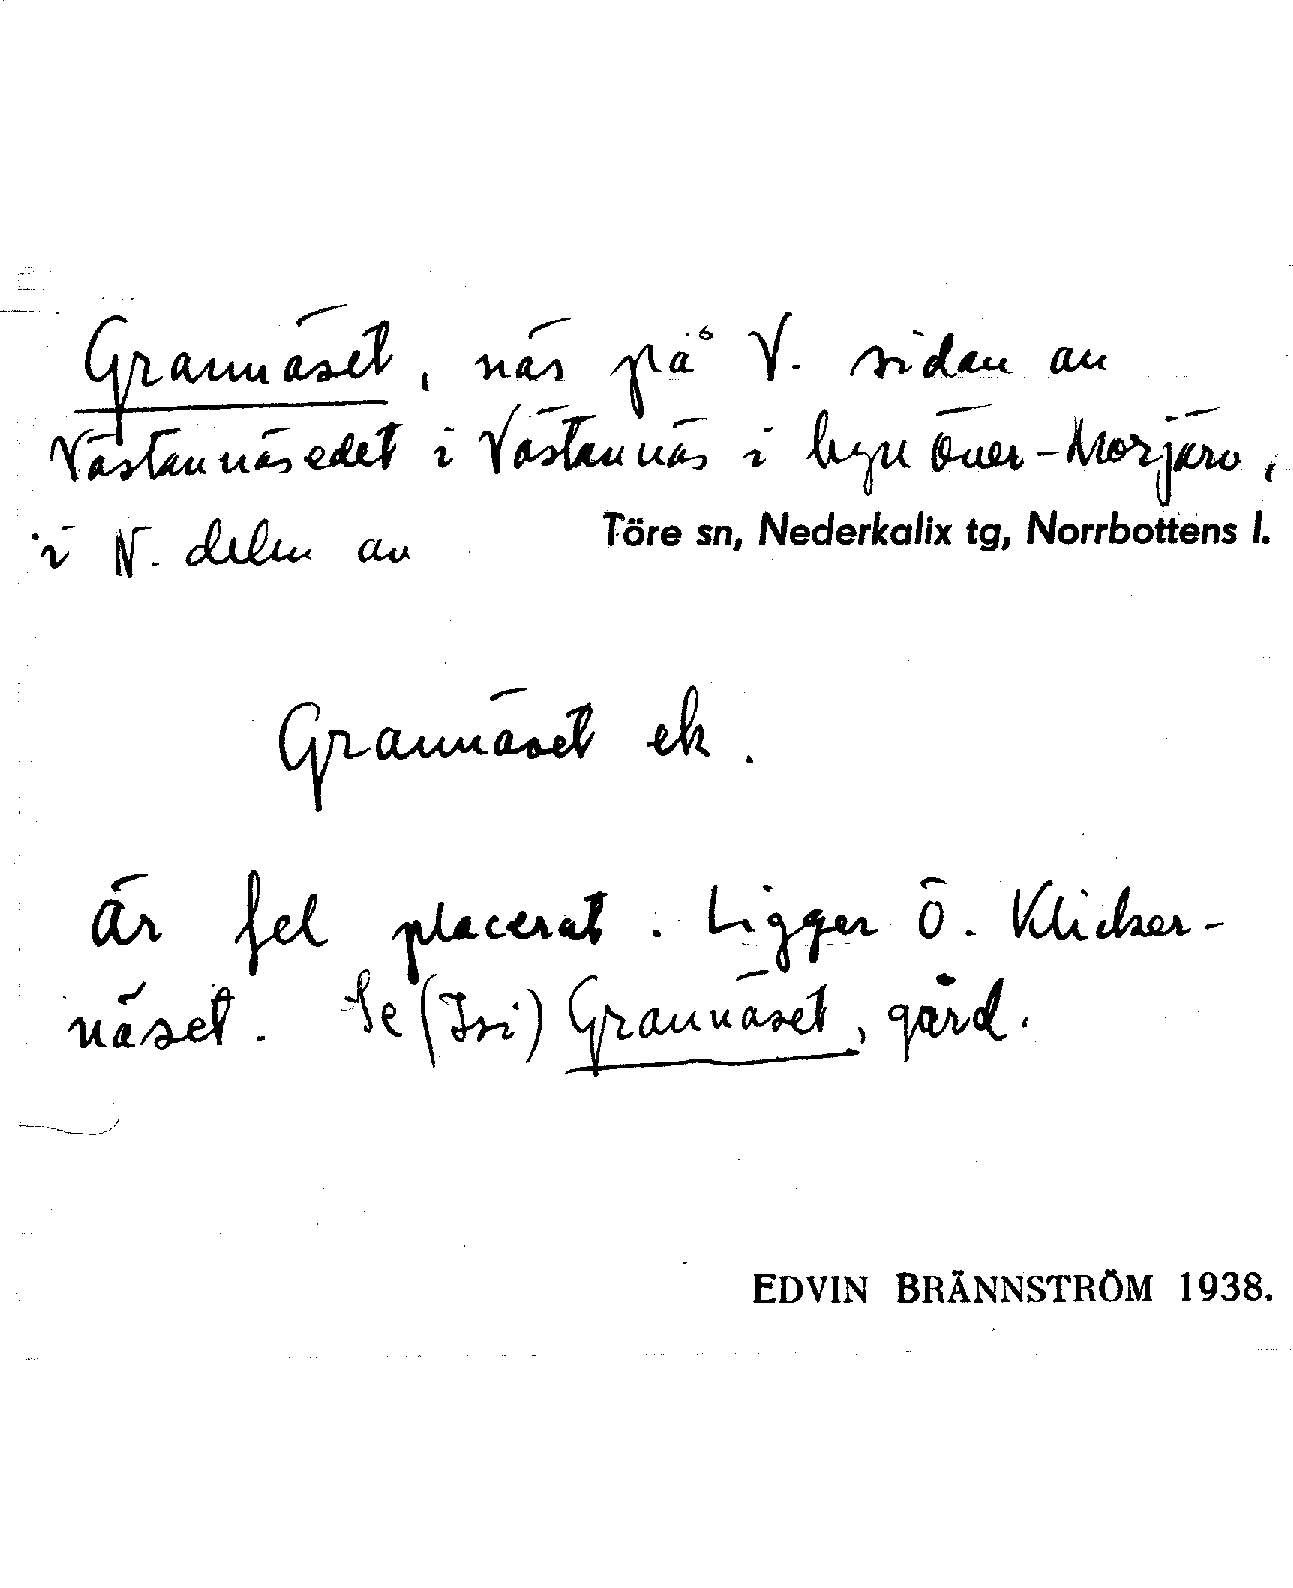 Grannäset, näs på V. sidan av
Västannäsedet i Västannäs i byn Över-Morjärv,
i N. delen av Töre sn, Nederkalix tg, Norrbottens l.
Grannäset ek.
Är fel placerat. Ligger Ö. Klicker-
näset. Se (Isi) Grannäset, gård.
EDVIN BRÄNNSTRÖM 1938.